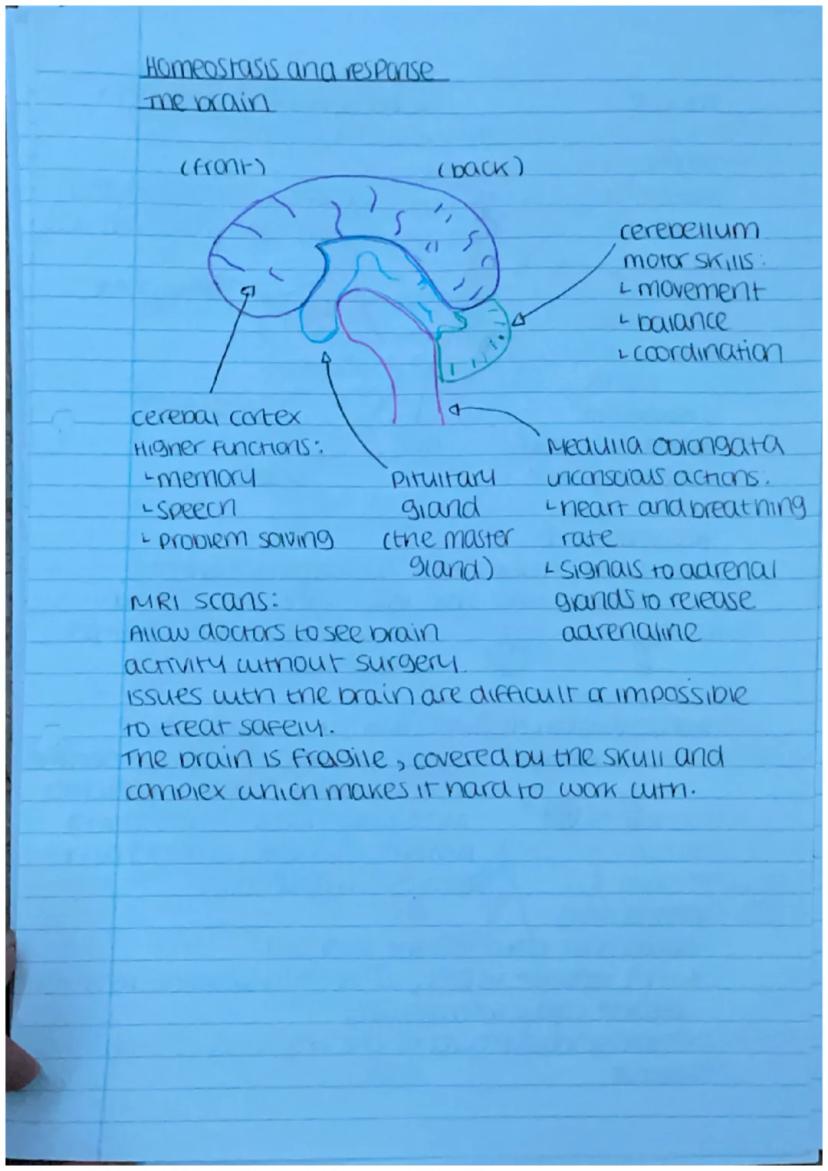 Homeostasis and response
The brain
(front)
(back)
cerebellum
motor skills:
↳ movement
↳ balance
↳ coordination
cerebal cortex
Higher functions:
↳ memory
↳ speech
↳ problem solving
Pituitary
gland
(the master
gland)
Medulla oblongata
unconscious actions:
↳ heart and breathning
rate
↳ signals to adrenal
glands to release
adrenaline
MRI scans:
Allow doctors to see brain
activity without surgery.
Issues with the brain are difficult or impossible
to treat safely.
The brain is fragile, covered by the skull and
complex which makes it hard to work with.